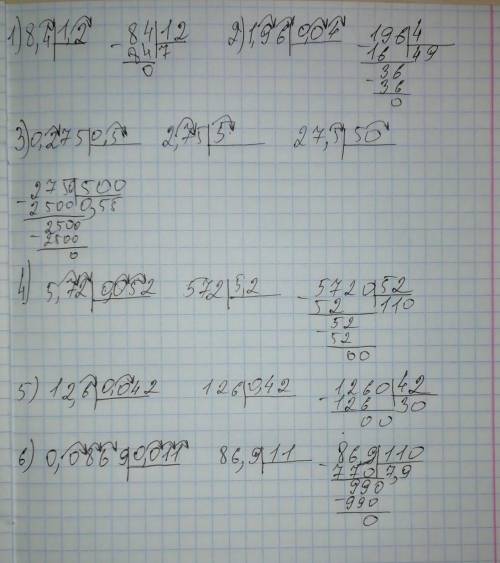 1) 8,4 1,2 - 84 12 2) 1,96 0,04 - 196 4
84 7 16 49
0 - 36
36
0
3) 0,275 0,5 2,75 5 27,5 50
- 2750 500
2500 0,55
2500
- 2500
0
4) 5,72 0,052 572 5,2 - 5720 52
52 110
- 52
52
00
5) 12,6 0,042 126 0,42 - 1260 42
126 30
00
6) 0,0869 0,011 86,9 11 - 86,9 110
770 7,9
990
- 990
0